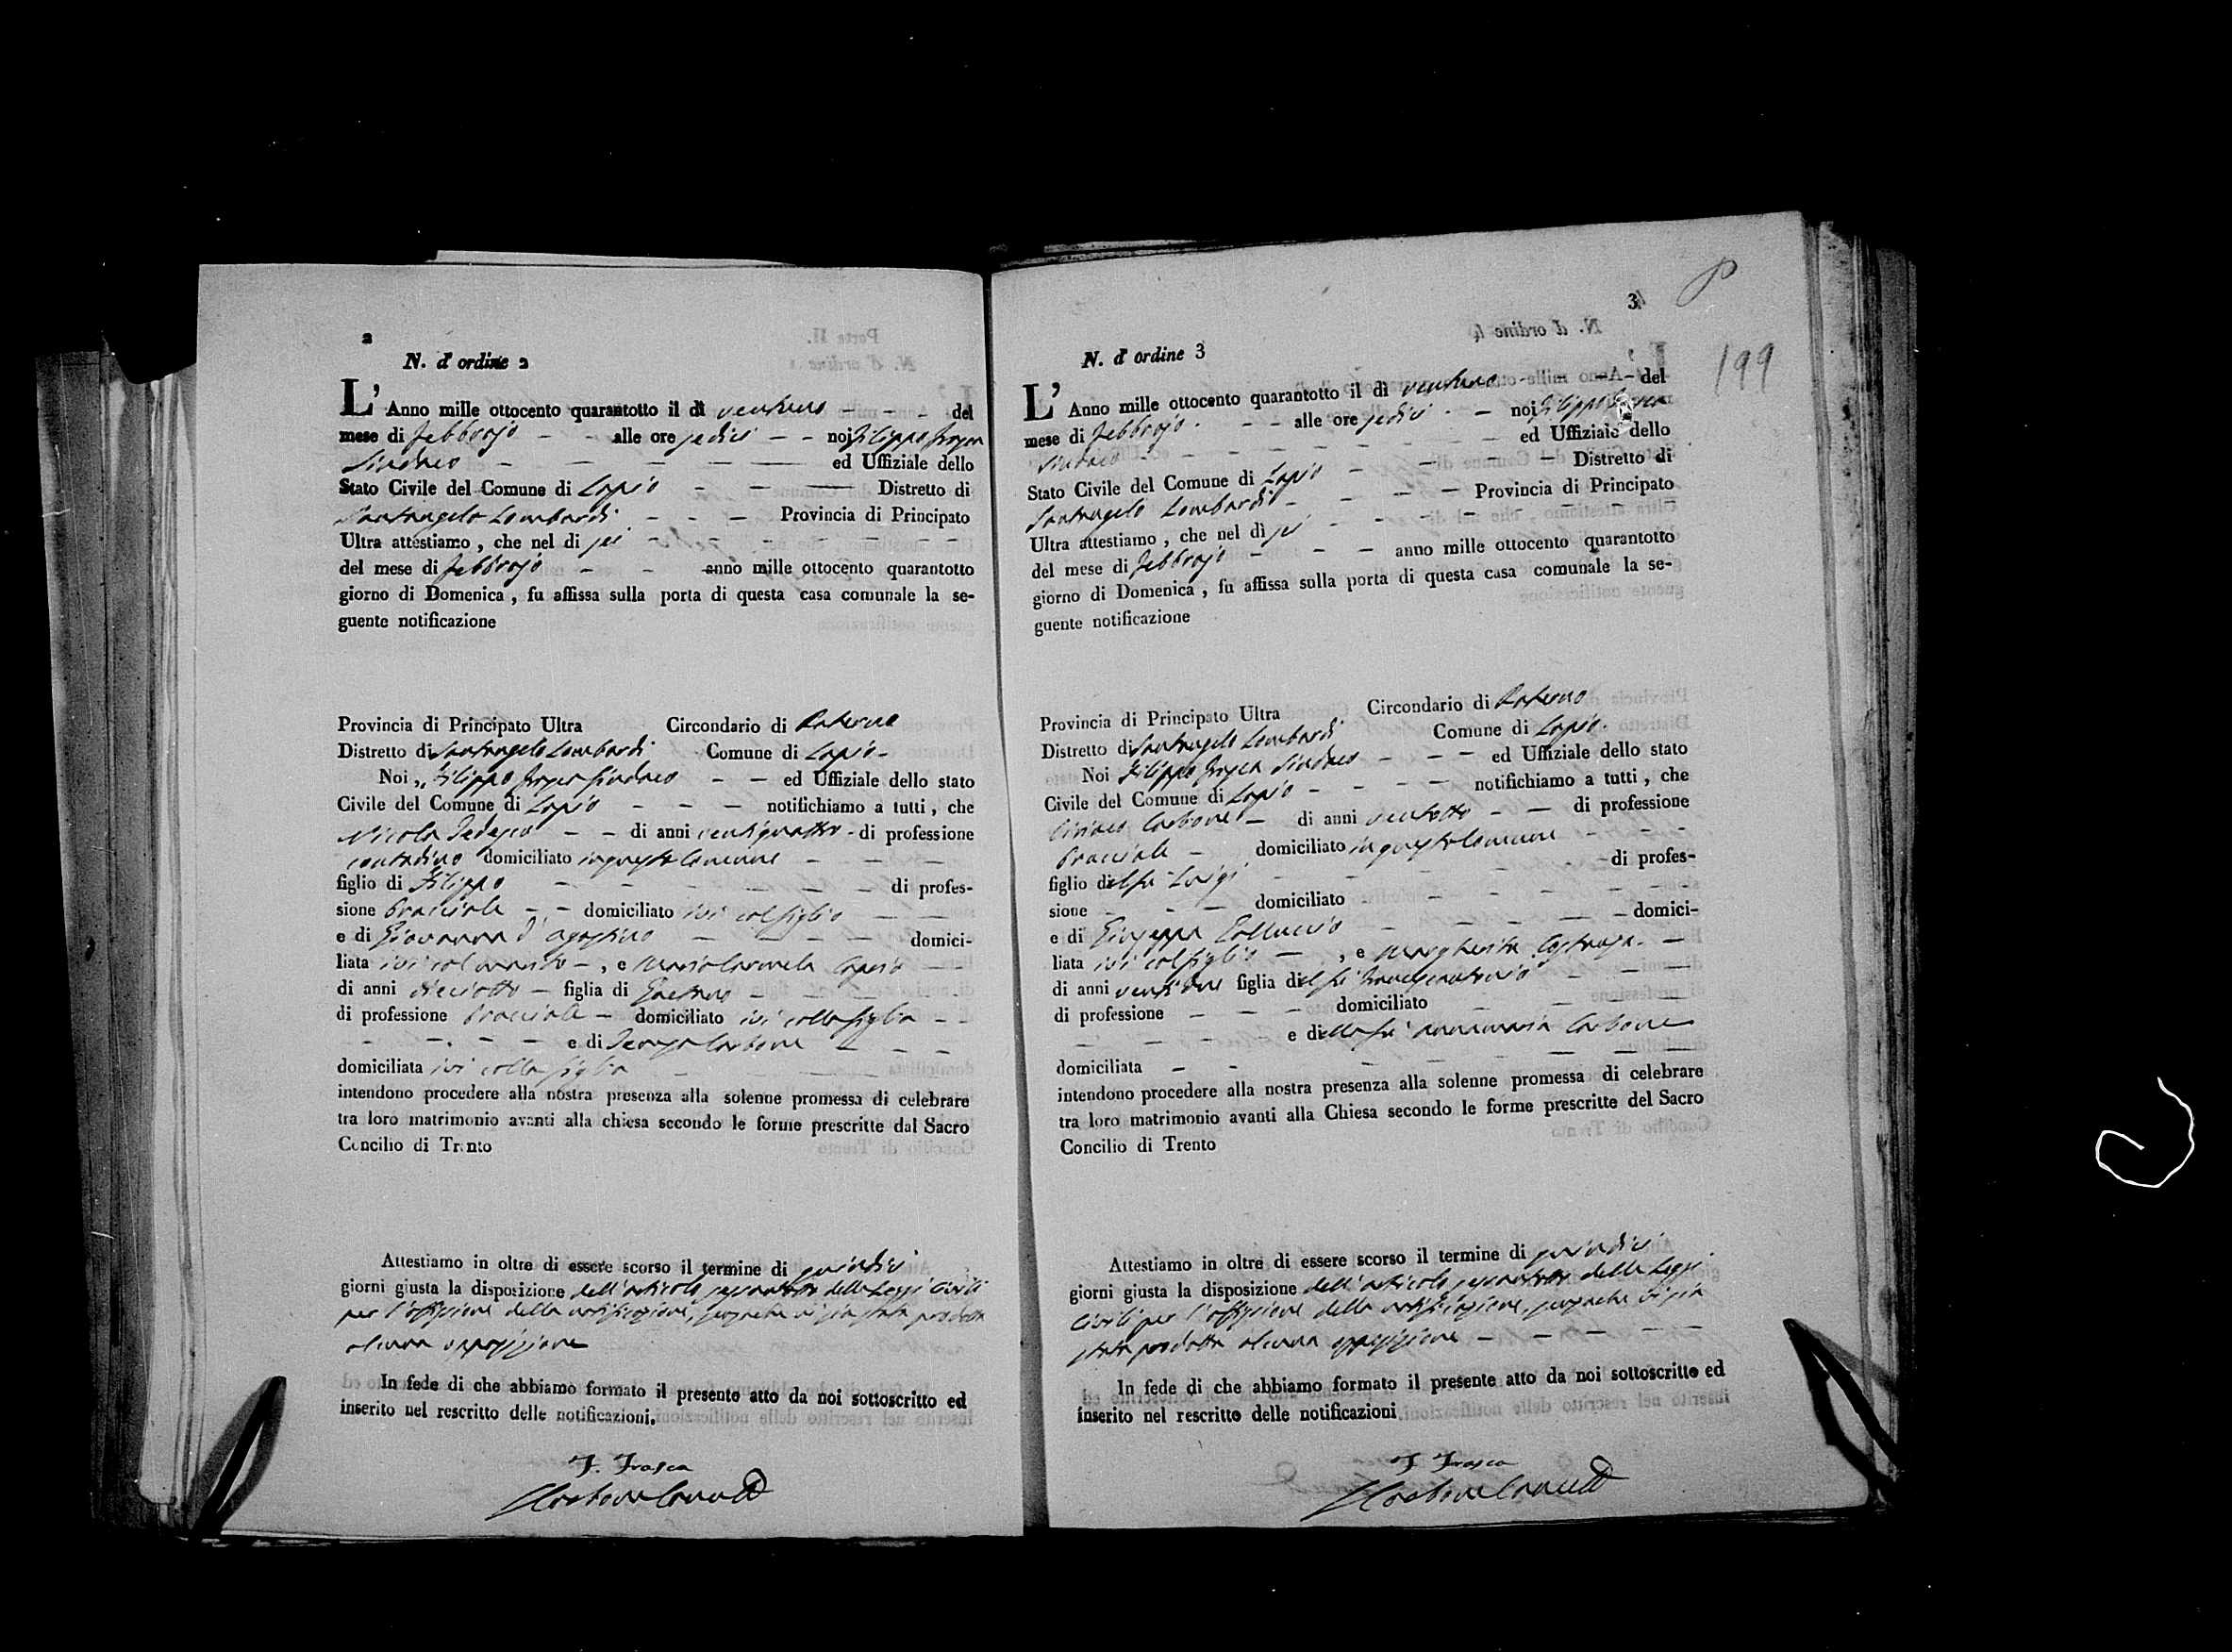 2
N. d' ordine 2
L' Anno mille ottocento quarantotto il dì ventuno - - - del
mese di febbrajo - - alle ore sedici - - noi Filippo Frasca
Sindaco - - - - - ed Uffiziale dello
Stato Civile del Comune di Lapio - - - Distretto di
Santangelo Lombardi - - - Provincia di Principato
Ultra attestiamo , che nel di sei - - - - - -
del mese di febbrajo - - anno mille ottocento quarantotto
giorno di Domenica , fu affissa sulla porta di questa casa comunale la se-
guente notificazione
Provincia di Principato Ultra Circondario di Paterno
Distretto di Santangelo Lombardi Comune di Lapio -
Noi ,, Filippo Frasca Sindaco - - ed Uffiziale dello stato
Civile del Comune di Lapio - - - notifichiamo a tutti , che
Nicola Tedesco - - di anni ventiquattro - di professione
contadino domiciliato in questo Comune - - -
figlio di Filippo - - - - - - - di profes-
sione bracciale - - domiciliato ivi col figlio - -
e di Giovanna d'Agostino - - - - domici-
liata ivi col marito - , e Maria Carmela Caposio - -
di anni dieciotto - figlia di Gaetano - - - -
di professione bracciale - domiciliato ivi colla figlia - -
- - - - - e di Teresa Carbone - - -
domiciliata ivi colla figlia - - -
intendono procedere alla nostra presenza alla solenne promessa di celebrare
tra loro matrimonio avanti alla chiesa secondo le forme prescritte dal Sacro
Concilio di Trento
Attestiamo in oltre di essere scorso il termine di quindici
giorni giusta la disposizione dell'articolo sessantotto delle Leggi Civili
per l'affissione della notificazione, senza che vi sia stata prodotta
alcuna opposizione
In fede di che abbiamo formato il presente atto da noi sottoscritto ed
inserito nel rescritto delle notificazioni.
F. Frasca
3
P
199
N. d' ordine 3
L' Anno mille ottocento quarantotto il dì ventuno - - - - del
mese di febbrajo - - - alle ore sedici - - noi Filippo
Sindaco - - - - - - - ed Uffiziale dello
Stato Civile del Comune di Lapio - - - Distretto di
Santangelo Lombardi - - - - Provincia di Principato
Ultra attestiamo , che nel dì sei - - - - - -
del mese di febbrajo - - - anno mille ottocento quarantotto
giorno di Domenica , fu affissa sulla porta di questa casa comunale la se-
guente notificazione
Provincia di Principato Ultra Circondario di Paterno
Distretto di Santangelo Lombardi Comune di Lapio -
Noi Filippo Frasca Sindaco - - - ed Uffiziale dello stato
Civile del Comune di Lapio - - - - notifichiamo a tutti , che
Ciriaco Carbone - di anni ventotto - - di professione
bracciale - domiciliato in questo Comune - - -
figlio del fu Luigi - - - - - di profes-
sione - - - domiciliato - - - - -
e di Giuseppa Colluccio - - - - - domici-
liata ivi col figlio - , e Margherita - -
di anni ventidue figlia del fu Francescantonio - - -
di professione - - - domiciliato - - - -
- - - e della fu Annamaria Carbone
domiciliata - - - - - - -
intendono procedere alla nostra presenza alla solenne promessa di celebrare
tra loro matrimonio avanti alla Chiesa secondo le forme prescritte del Sacro
Concilio di Trento
Attestiamo in oltre di essere scorso il termine di quindici
giorni giusta la disposizione dell'articolo sessantotto delle Leggi
Civili per l'affissione della notificazione, senza che vi sia
stata prodotta alcuna opposizione - - - - -
In fede di che abbiamo formato il presente atto da noi sottoscritto ed
inserito nel rescritto delle notificazioni
F Frasca